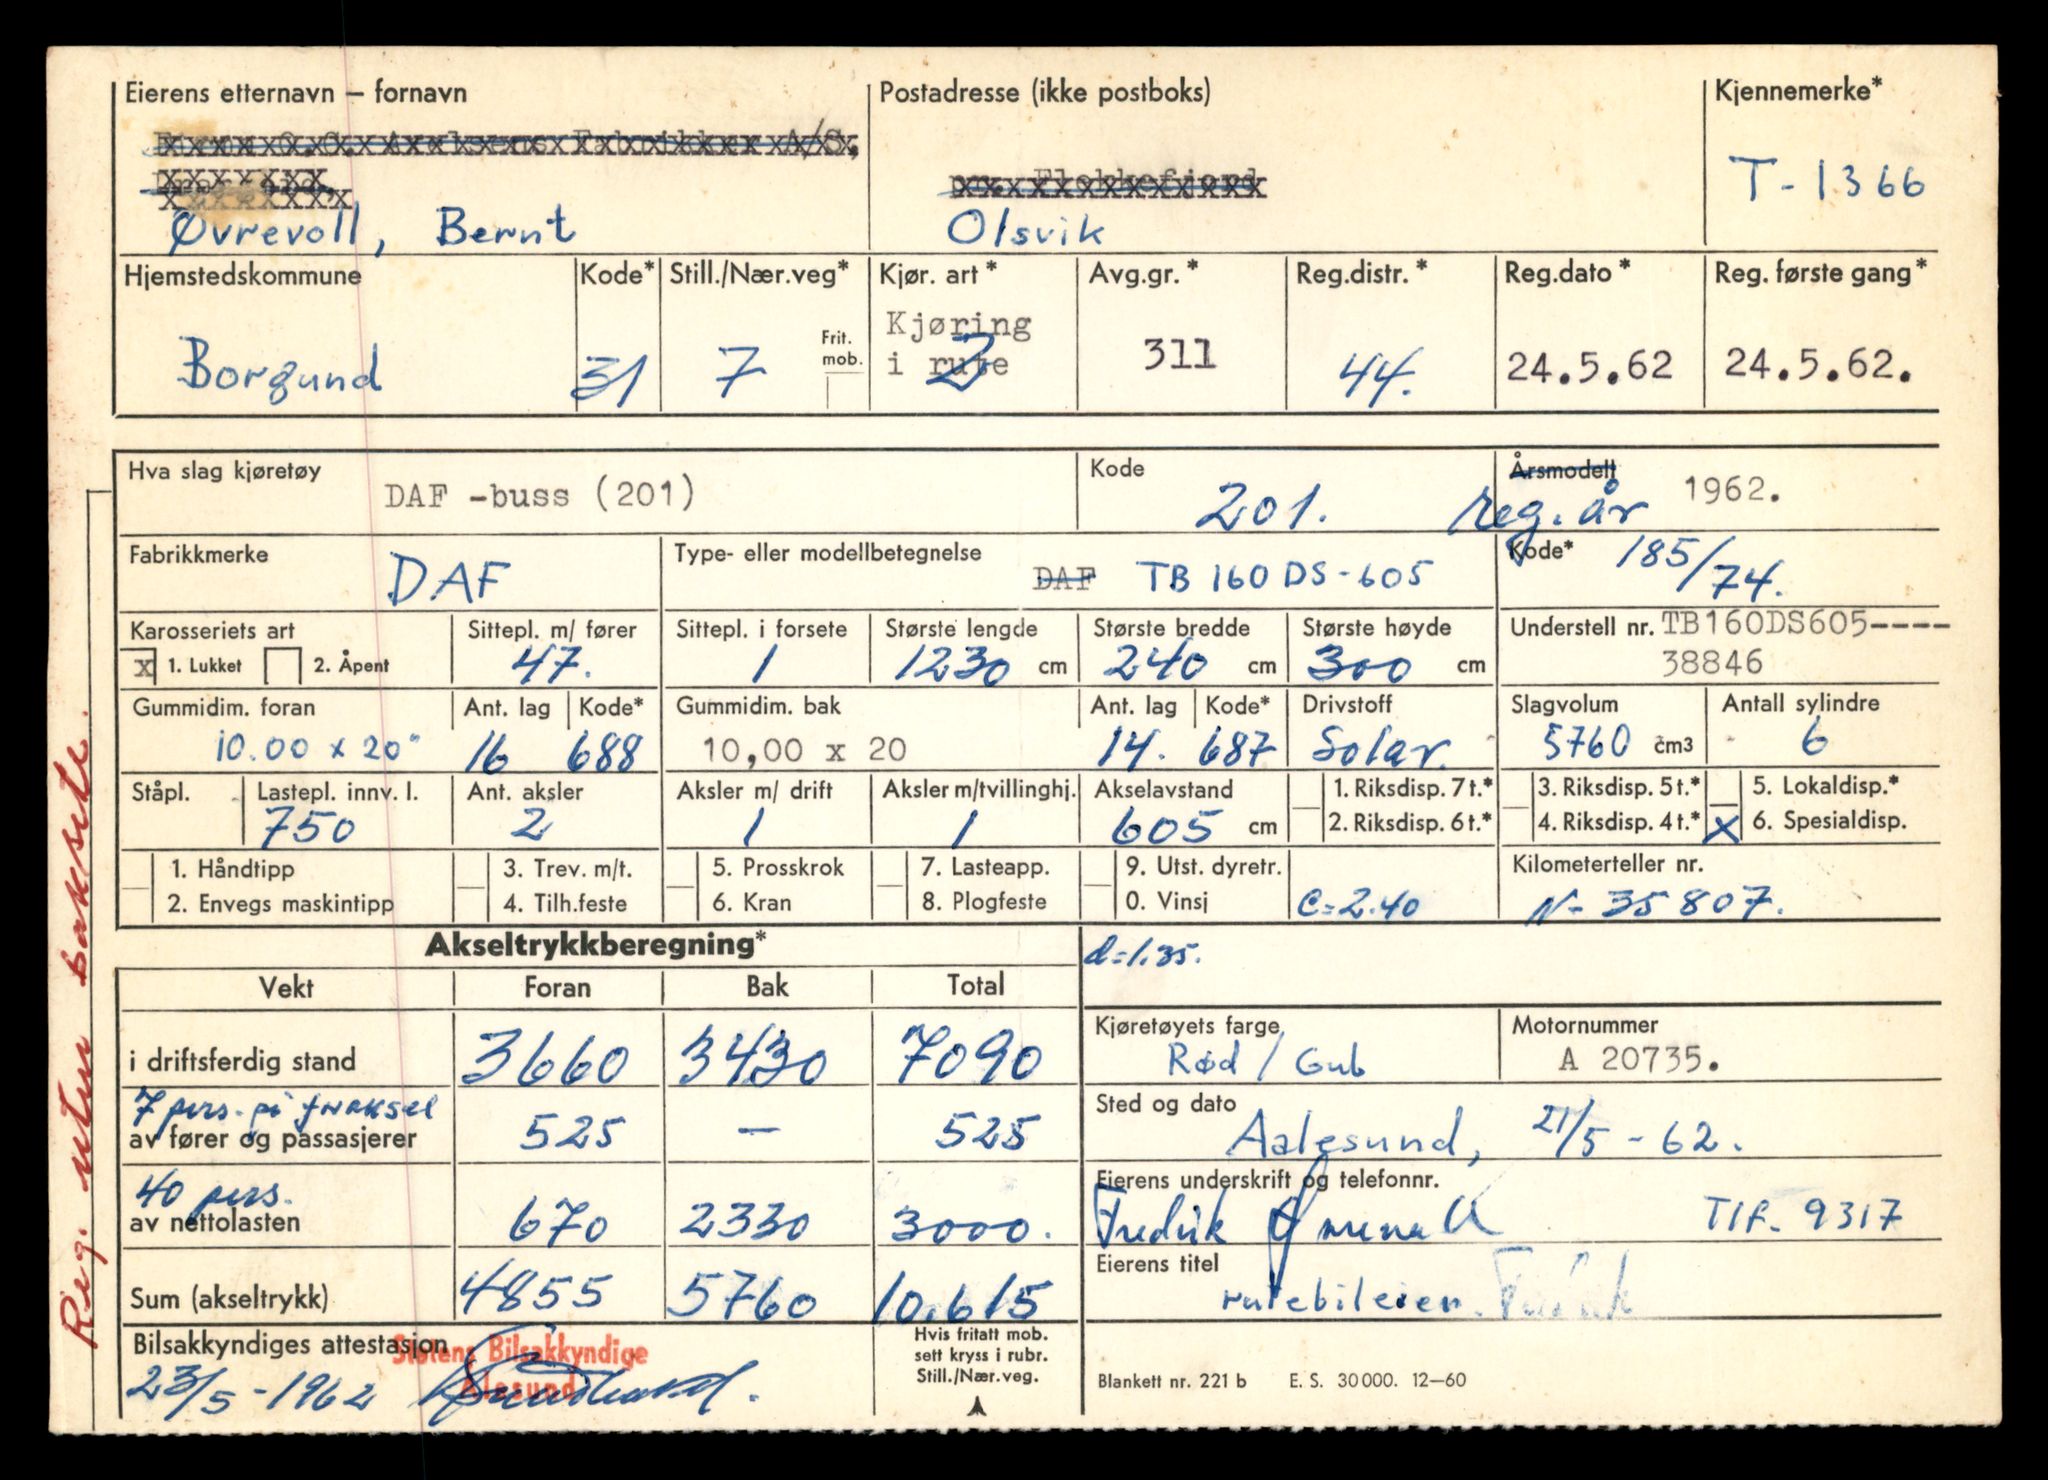 Eierens etternavn – fornavn Postadresse (ikke postboks) Kjennemerke*
T-1366
Øvrevoll, Bernt Olsvik
Hjemstedskommune Kode* Still./Nær.veg* Kjør. art * Avg.gr. * Reg.distr. * Reg.dato * Reg. første gang*
Borgund 31 7 Frit. mob. Kjøring i rute 311 44. 24.5.62 24.5.62.
Hva slag kjøretøy DAF -buss (201) Kode 201. Årsmodell reg. år 1962.
Fabrikkmerke DAF Type- eller modellbetegnelse DAF TB 160 DS-605 Kode* 185/74.
Karosseriets art Sittepl. m/ fører Sittepl. i forsete Største lengde Største bredde Største høyde Understell nr. TB160DS605----
x 1. Lukket 2. Åpent 47. 1 1230 cm 240 cm 300 cm 38846
Gummidim. foran Ant. lag Kode* Gummidim. bak Ant. lag Kode* Drivstoff Slagvolum Antall sylindre
10.00 x 20" 16 688 10,00 x 20 14. 687 Solar. 5760 cm3 6
Ståpl. Lastepl. innv. l. Ant. aksler Aksler m/ drift Aksler m/tvillinghj. Akselavstand 1. Riksdisp. 7 t.* 3. Riksdisp. 5 t.* 5. Lokaldisp.*
750 2 1 1 605 cm 2. Riksdisp. 6 t.* 4. Riksdisp. 4 t.* X 6. Spesialdisp.
1. Håndtipp 3. Trev. m/t. 5. Prosskrok 7. Lasteapp. 9. Utst. dyretr. Kilometerteller nr.
2. Envegs maskintipp 4. Tilh.feste 6. Kran 8. Plogfeste 0. Vinsj C=2.40 N- 35807.
Akseltrykkberegning* d=1.35.
Vekt Foran Bak Total
i driftsferdig stand 3660 3430 7090
Kjøretøyets farge Rød / Gub Motornummer A 20735.
7 pers. på foraksel
av fører og passasjerer 525 – 525
Sted og dato Aalesund, 21/5-62.
40 pers.
av nettolasten 670 2330 3000.
Eierens underskrift og telefonnr.
Fredrik Tlf. 9317
Sum (akseltrykk) 4855 5760 10.615
Eierens titel
rutebileier.
Bilsakkyndiges attestasjon Statens Bilsakkyndige
Ålesund
23/5-1962
Hvis fritatt mob.
sett kryss i rubr.
Still./Nær.veg.
Blankett nr. 221 b E. S. 30000. 12—60
Reg. uten bakside.